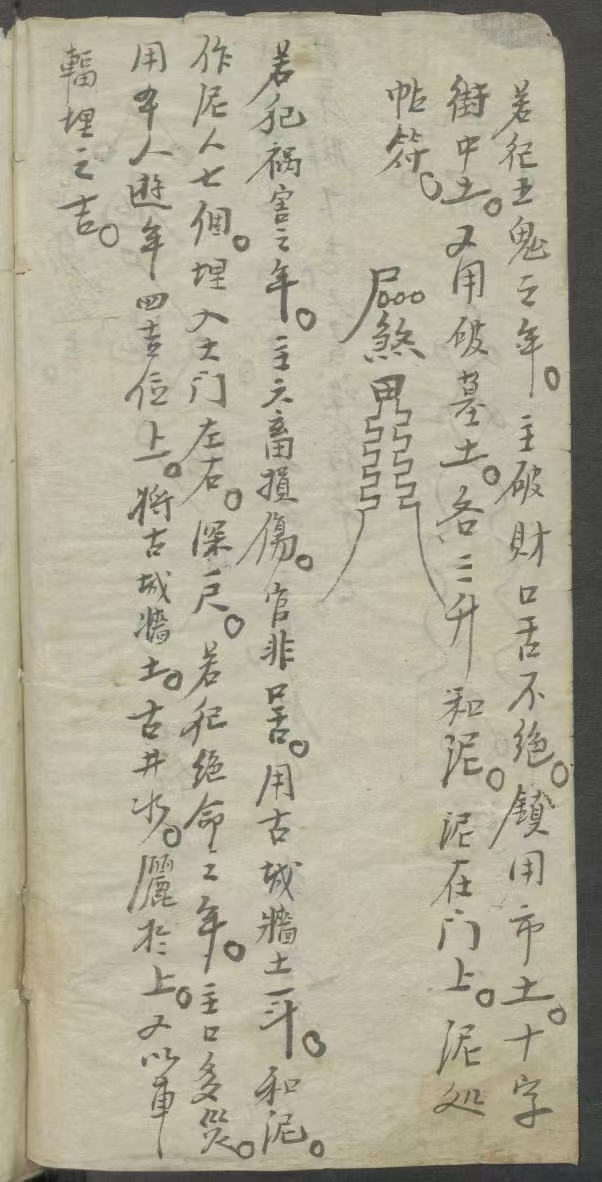 若犯五鬼之年。主破財口舌不绝。鎮用市土。十字
街中土。又用破墓土。各三升和泥。泥在门上。泥处
帖符。
煞
若犯祸害之年。主六畜損傷。官非口舌。用古城牆土一斗。和泥。
作泥人七個。埋入大门左右。深三尺。若犯绝命之年。主口多災。
用本人遊年四吉位上。將古城牆土。古井水。灑於上。又以車
輻埋之吉。